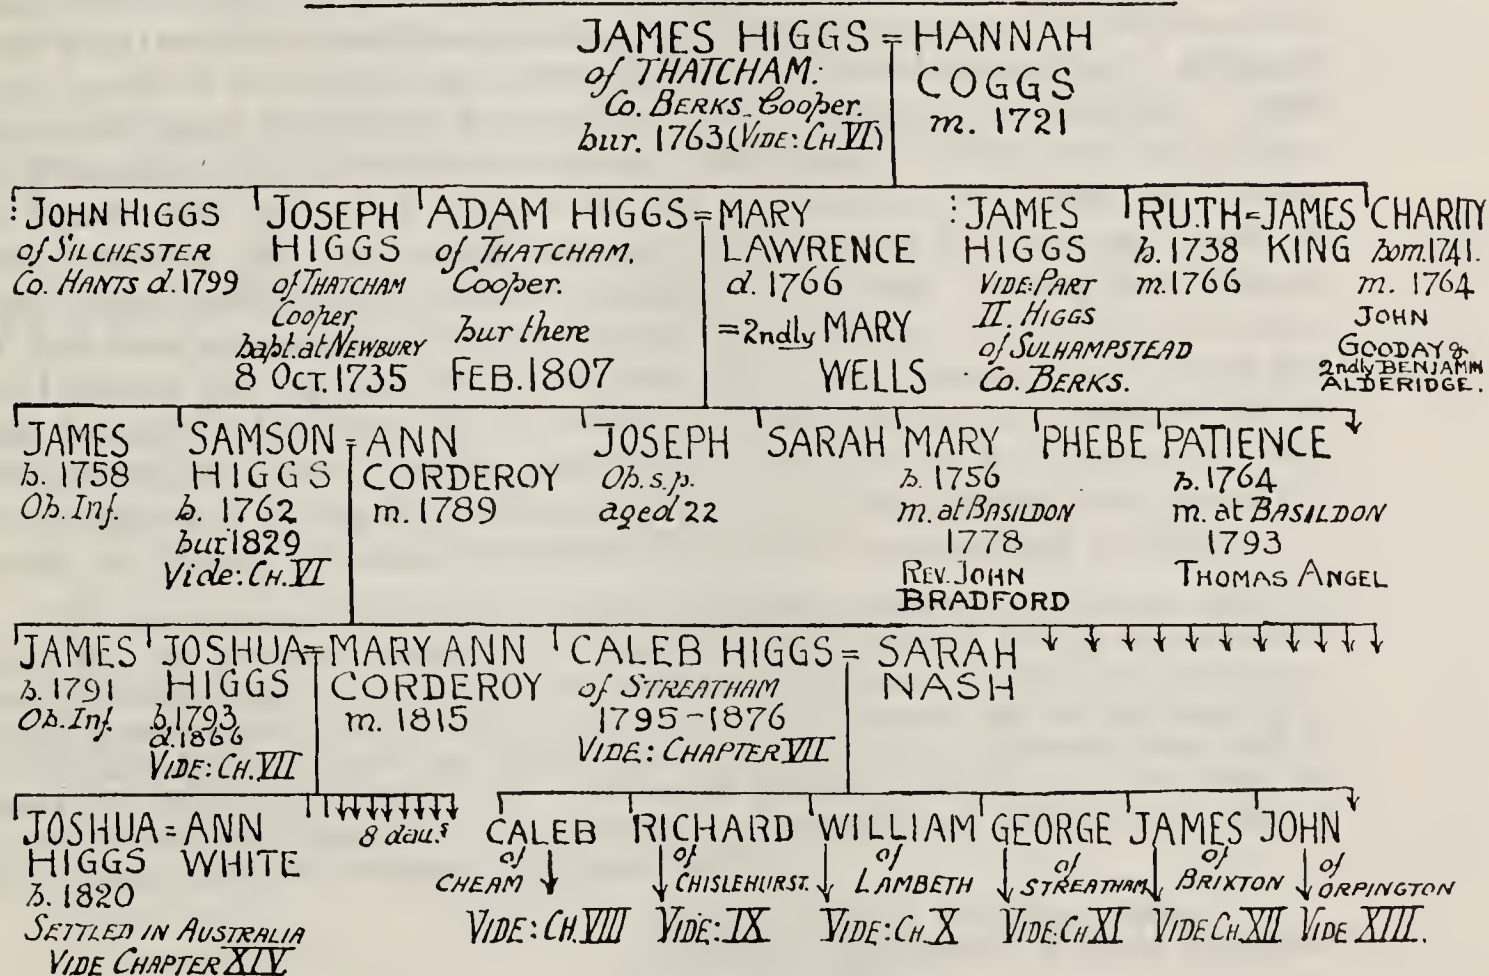 JAMES HIGGS = HANNAH COGGS
of THATCHAM.
Co. BERKS. Cooper.
bur. 1763 (VIDE: CH VI)
m. 1721
JOHN HIGGS
of SILCHESTER
Co. HANTS d. 1799
JOSEPH
HIGGS
of THATCHAM
Cooper,
bapt. at NEWBURY
8 OCT. 1735
ADAM HIGGS =
of THATCHAM.
Cooper.
bur there
FEB. 1807
MARY
LAWRENCE
d. 1766
= 2ndly MARY
WELLS
JAMES
HIGGS
VIDE: PART
II. HIGGS
of SULHAMPSTEAD
Co. BERKS.
RUTH = JAMES
b. 1738 KING
m. 1766
CHARITY
born 1741.
m. 1764
JOHN
GOODAY &
2ndly BENJAMIN
ALDERIDGE.
JAMES
b. 1758
Ob. Inf.
SAMSON =
HIGGS
b. 1762
bur 1829
Vide: CH. VI
ANN
CORDEROY
m. 1789
JOSEPH
Ob. s.p.
aged 22
SARAH
MARY
b. 1756
m. at BASILDON
1778
REV. JOHN
BRADFORD
PHEBE
PATIENCE
b. 1764
m. at BASILDON
1793
THOMAS ANGEL
JAMES
b. 1791
Ob. Inf.
JOSHUA =
HIGGS
b. 1793
d. 1866
VIDE: CH. VII
MARY ANN
CORDEROY
m. 1815
CALEB HIGGS =
of STREATHAM
1795-1876
VIDE: CHAPTER VII
SARAH
NASH
JOSHUA = ANN
HIGGS WHITE
b. 1820
SETTLED IN AUSTRALIA
VIDE CHAPTER XIV.
8 dau.s
CALEB
of
CHEAM
VIDE: CH. VIII
RICHARD
of
CHISLEHURST.
VIDE: IX
WILLIAM
of
LAMBETH
VIDE: CH. X
GEORGE
of
STREATHAM
VIDE: CH XI
JAMES
of
BRIXTON
VIDE CH. XII
JOHN
of
ORPINGTON
VIDE XIII.